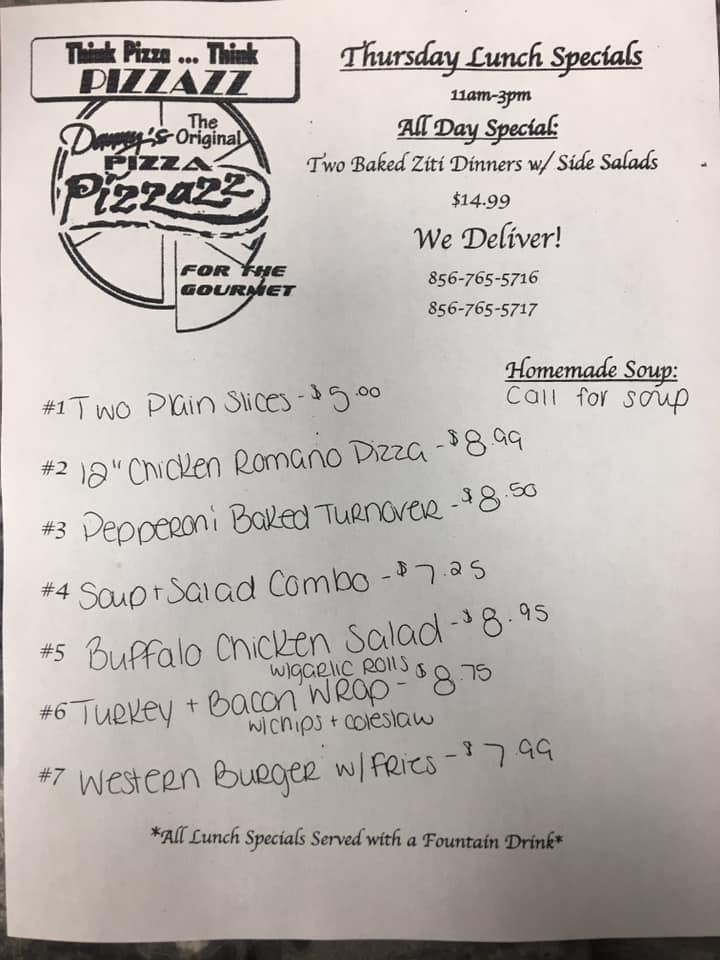 Think Pizza ... Think
PIZZAZZ
Danny's The Original
PIZZA
Pizzazz
FOR THE
GOURMET
Thursday Lunch Specials
11am-3pm
All Day Special:
Two Baked Ziti Dinners w/ Side Salads
$14.99
We Deliver!
856-765-5716
856-765-5717
Homemade Soup:
Call for soup
#1 Two Plain Slices - $5.00
#2 12" Chicken Romano Pizza - $8.99
#3 Pepperoni Baked Turnover - $8.50
#4 Soup + Salad Combo - $7.25
#5 Buffalo Chicken Salad - $8.95
w/garlic rolls
#6 Turkey + Bacon Wrap - $8.75
w/chips + coleslaw
#7 Western Burger w/fries - $7.99
*All Lunch Specials Served with a Fountain Drink*